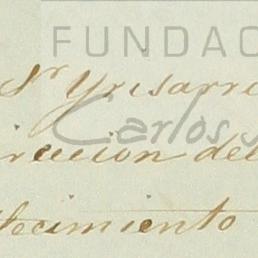 FUNDAC
Sr Yrisarri
Carlos
iracion del
lecimiento